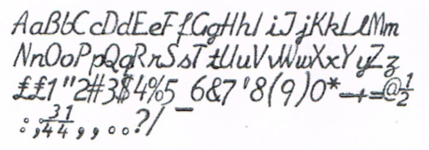 AaBbCcDdEeFfGgHhIiJjKkLlMm
NnOoPpQqRrSsTtUuVvWwXxYyZz
££1"2#3$4%5_6&7'8(9)0*-+=@½
:;¾¼,,..?/